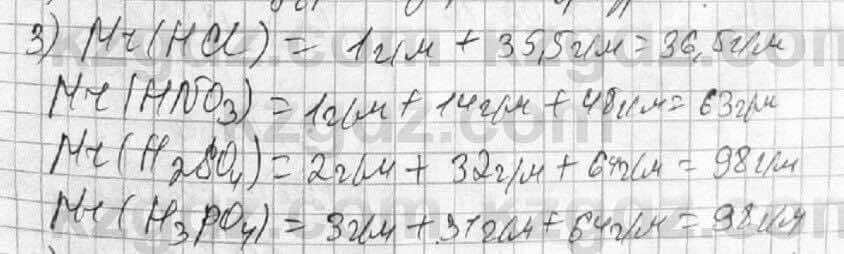 3) Mr(HCl) = 1г/м + 35,5г/м = 36,5г/м
Mr(HNO3) = 1г/м + 14г/м + 48г/м = 63г/м
Mr(H2SO4) = 2г/м + 32г/м + 64г/м = 98г/м
Mr(H3PO4) = 3г/м + 31г/м + 64г/м = 98г/м